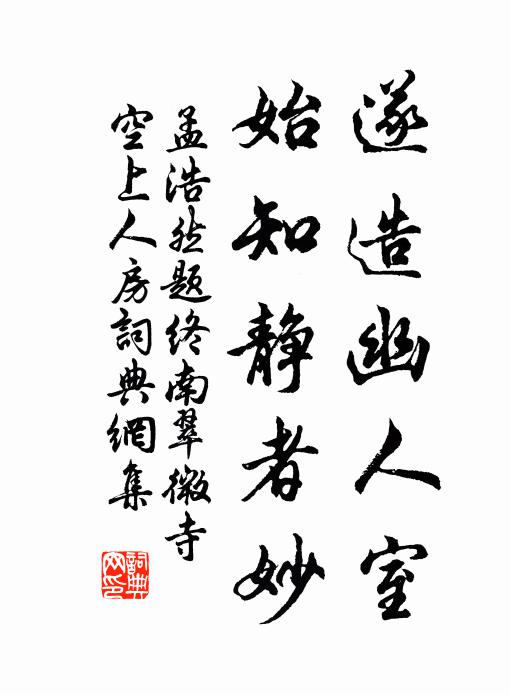 遂造幽人室
始知静者妙
孟浩然题终南翠微寺
空上人房詞典網集
詞典
网印